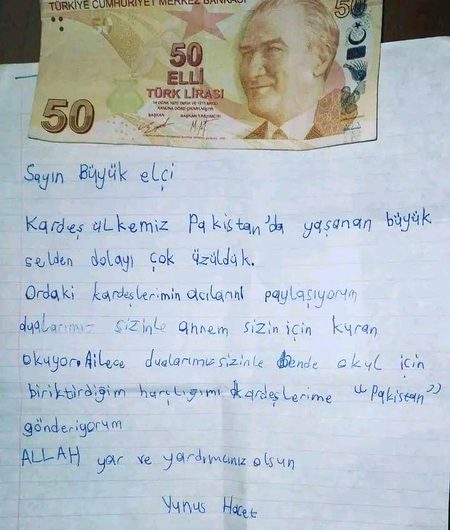 TÜRKİYE CUMHURİYET MERKEZ BANKASI
50
50
ELLİ
TÜRK LİRASI
14 OCAK 1970 TARİH VE 1211 SAYILI
KANUNA GÖRE ÇIKARILMIŞTIR.
BAŞKAN BAŞKAN YARDIMCISI
50
Sayın Büyük elçi
Kardeş ülkemiz Pakistan'da yaşanan büyük
selden dolayı çok üzüldük.
Ordaki kardeşlerimin acılarını paylaşıyorum
dualarımız sizinle annem sizin için kuran
okuyor. Ailece dualarımız sizinle bende okul için
biriktirdiğim harçlığımı kardeşlerime "Pakistan"
gönderiyorum
ALLAH yar ve yardımcınız olsun
Yunus Hacet